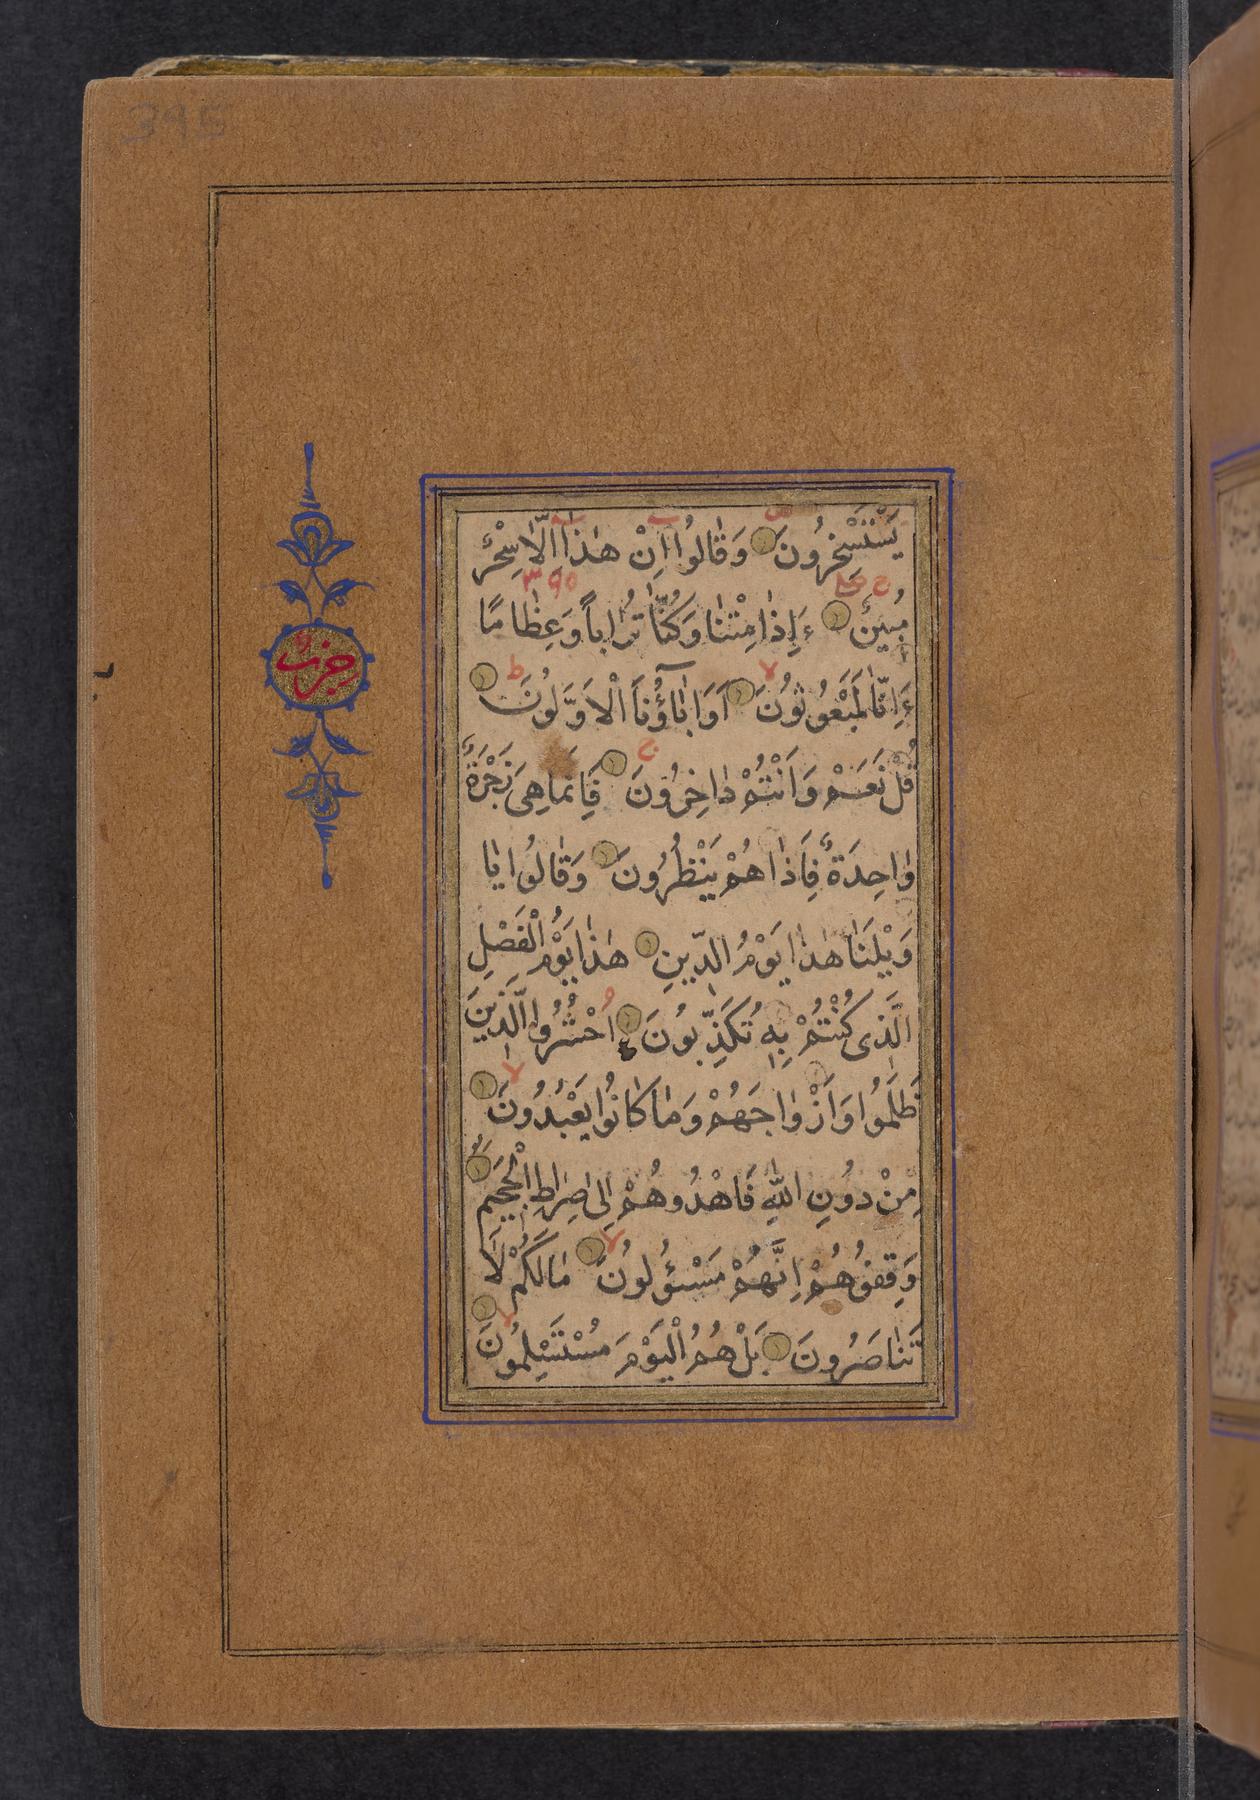 395
يَسْتَسْخِرُونَ وَقَالُوا اِنْ هٰذَا اِلَّا سِحْرٌ
مُبِينٌ ءَاِذَا مِتْنَا وَكُنَّا تُرَاباً وَعِظَامًا
ءَاِنَّا لَمَبْعُوثُونَ اَوَاٰبَاؤُنَا الْاَوَّلُونَ
قُلْ نَعَمْ وَاَنْتُمْ دَاخِرُونَ فَاِنَّمَا هِيَ زَجْرَةٌ
وَاحِدَةٌ فَاِذَا هُمْ يَنْظُرُونَ وَقَالُوا يَا
وَيْلَنَا هٰذَا يَوْمُ الدِّينِ هٰذَا يَوْمُ الْفَصْلِ
الَّذِى كُنْتُمْ بِهِ تُكَذِّبُونَ اُحْشُرُوا الَّذِينَ
ظَلَمُوا وَاَزْوَاجَهُمْ وَمَا كَانُوا يَعْبُدُونَ
مِنْ دُونِ اللّٰهِ فَاهْدُوهُمْ اِلَى صِرَاطِ الْجَحِيمِ
وَقِفُوهُمْ اِنَّهُمْ مَسْئُولُونَ مَالَكُمْ لَا
تَنَاصَرُونَ بَلْ هُمُ الْيَوْمَ مُسْتَسْلِمُونَ
حزب
٣٩٥